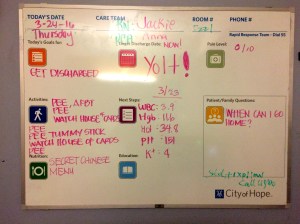 TODAY'S DATE
CARE TEAM
ROOM #
PHONE #
3-24-16
RN Jackie
Rapid Response Team - Dial 55
Thursday
NCA Anna
Today's Goals for:
Target Discharge Date:
NOW!
Pain Level:
0/10
YOLT!
GET DISCHARGED
3/23
Activities:
Next Steps:
Patient/Family Questions:
PEE, A LOT
WBC: 2.9
WHEN CAN I GO
HOME?
WATCH HOUSE OF CARDS
Hgb: 11.6
PEE
Hct: 34.8
PEE TUMMY STICK
WATCH HOUSE OF CARDS
Plt: 151
PEE
PEE
K+: 4
Nutrition:
Education:
SECRET CHINESE
MENU
City of Hope